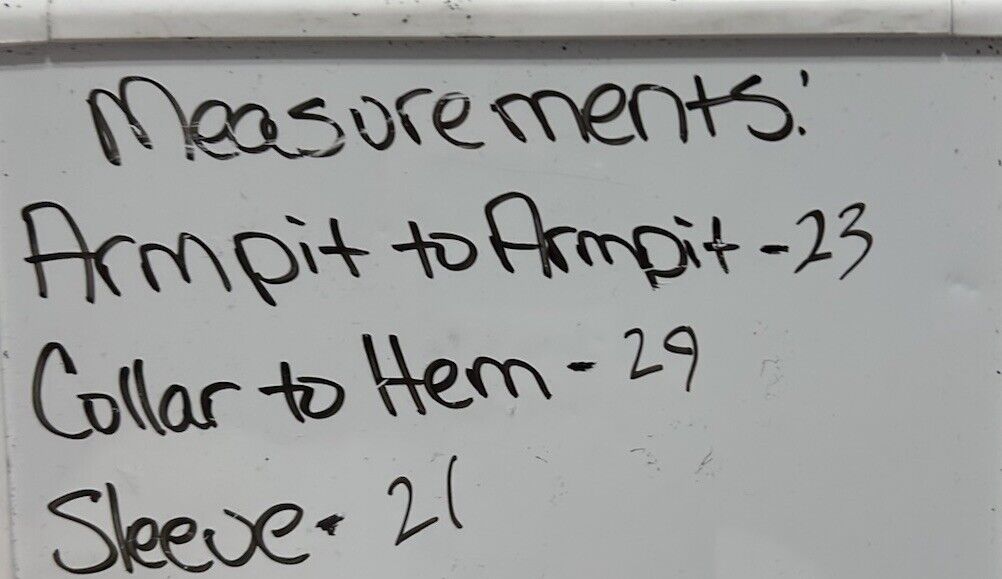 Measurements:
Armpit to Armpit - 23
Collar to Hem - 29
Sleeve - 21